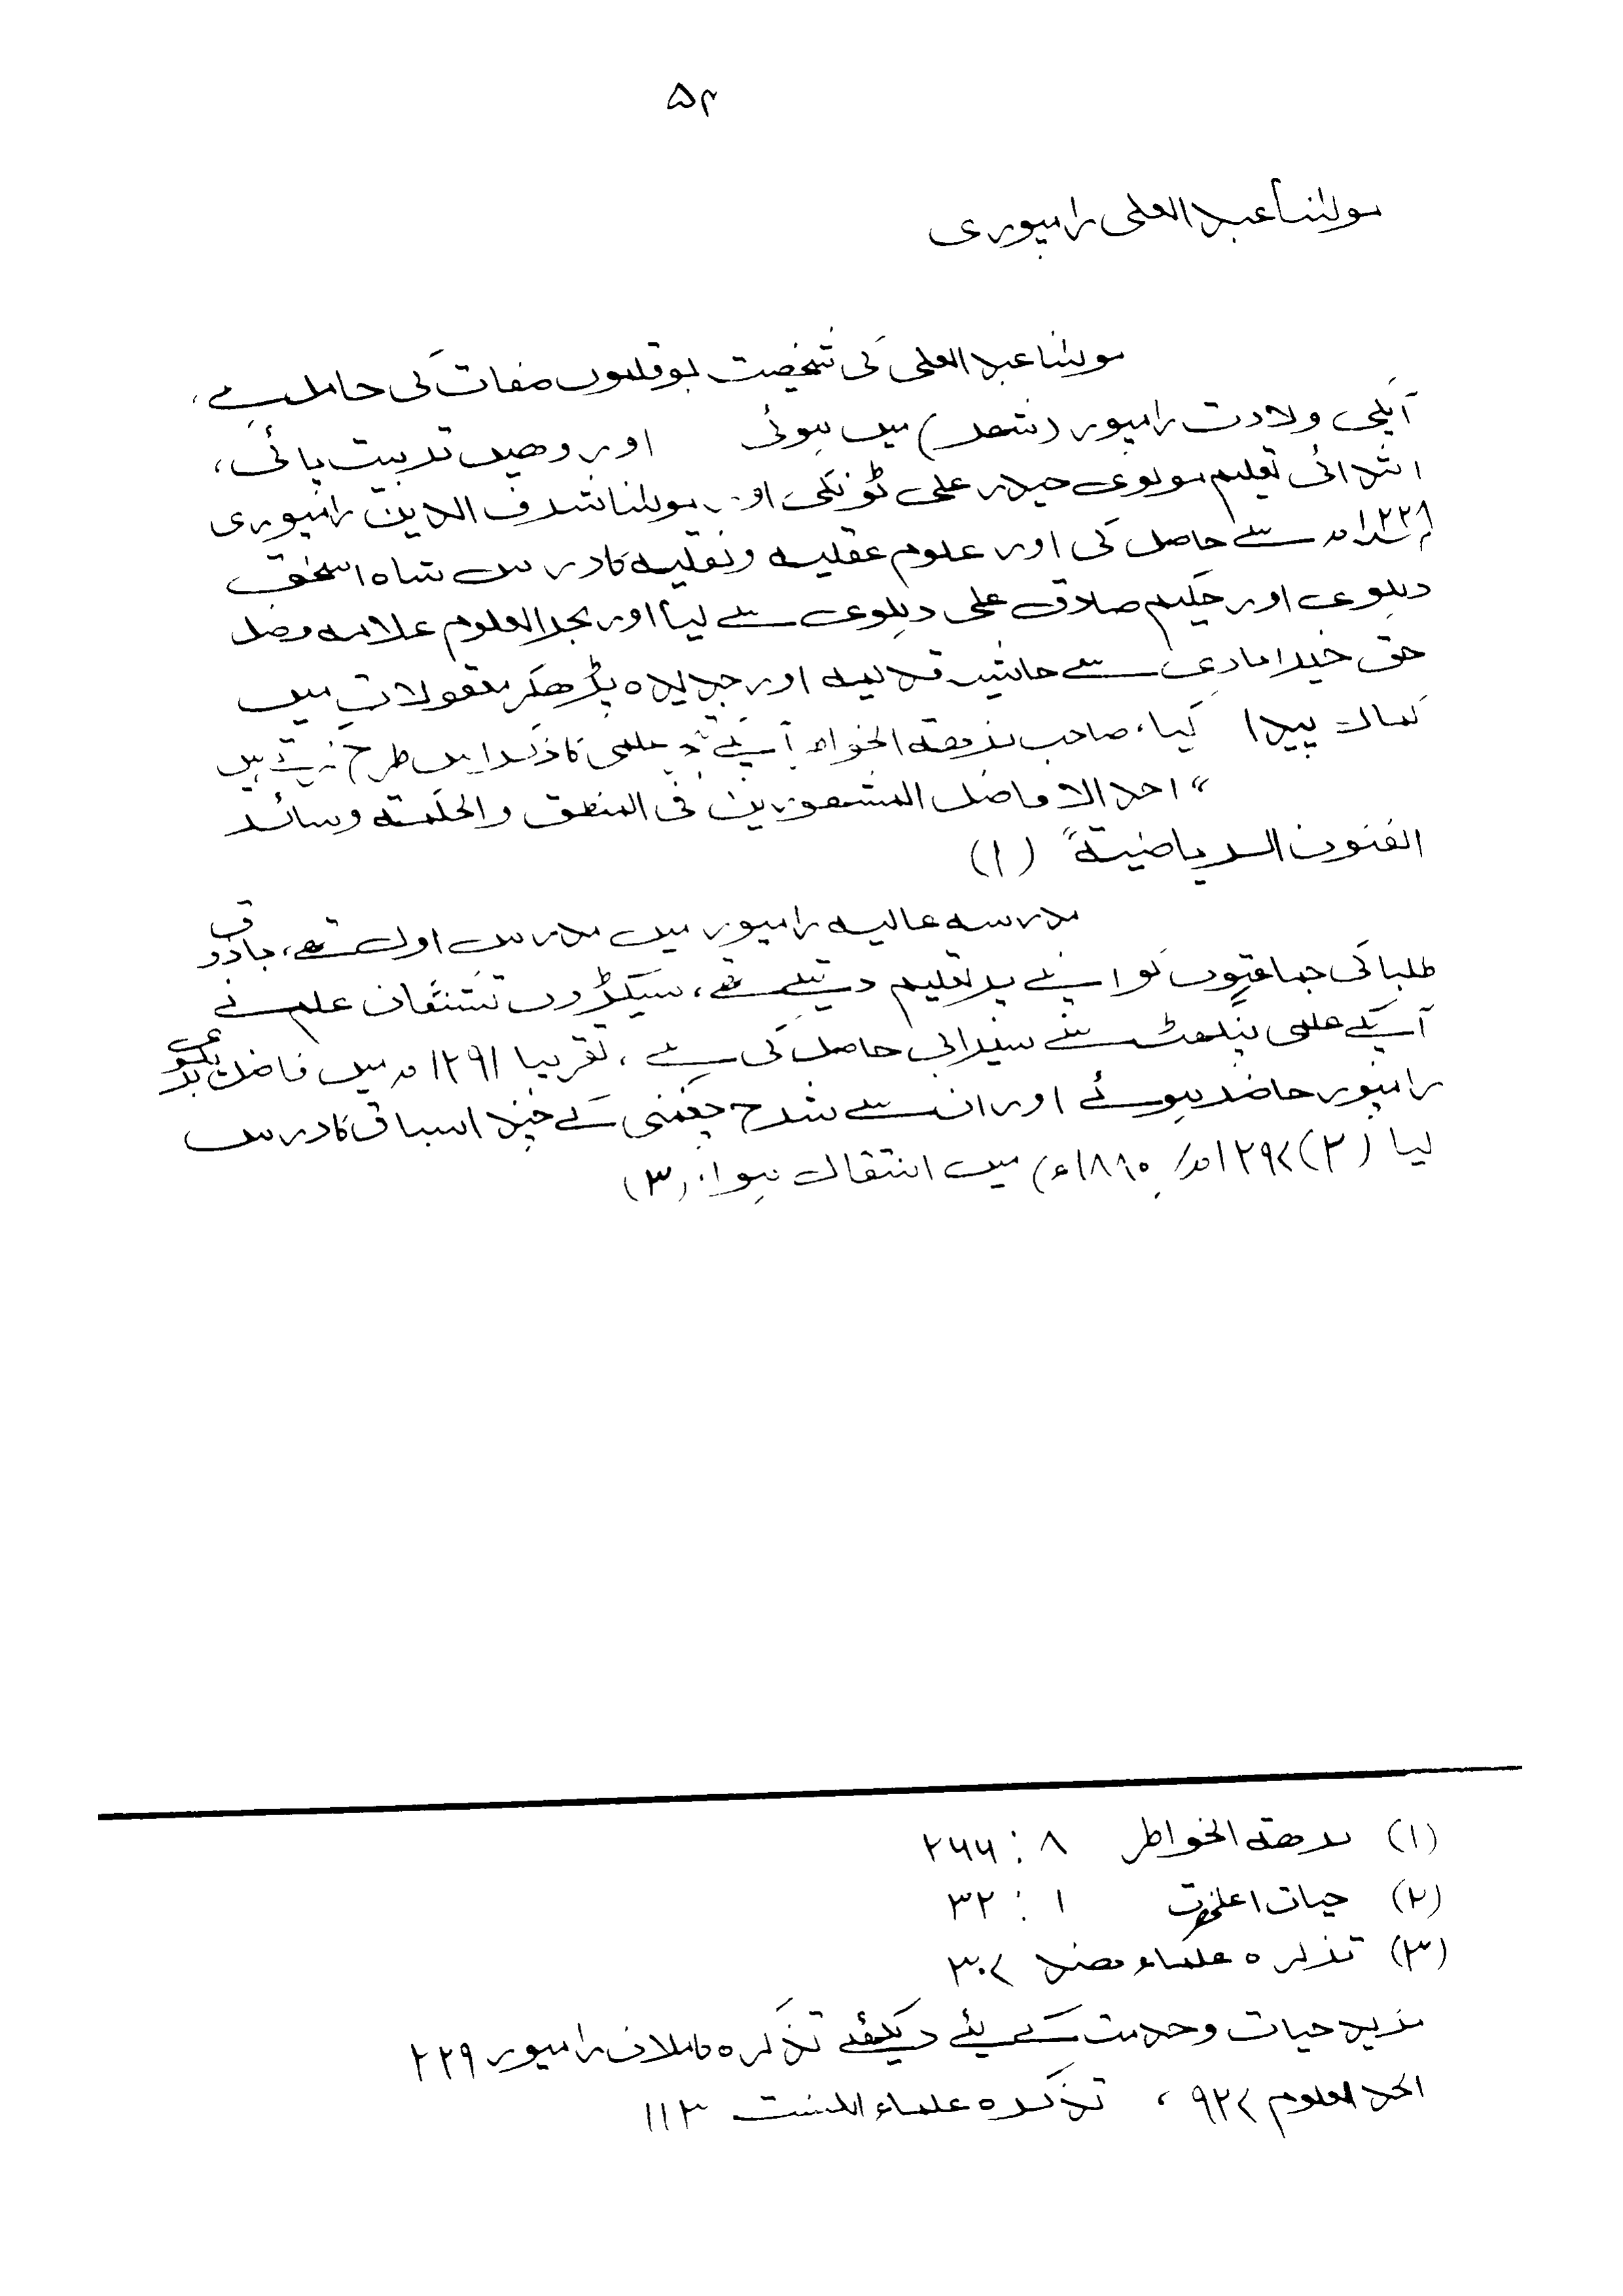 ۵۴
مولانا عبد العلی رامپوری
مولانا عبد العلی کی شخصیت بوقلموں صفات کی حامل ہے،
آپکی ولادت رامپور (شہر) میں ہوئی اور وھیں تربیت پائی،
ابتدائی تعلیم مولوی حیدر علی ٹونکی اور مولانا شرف الدین رامپوری
سے حاصل کی اور علوم عقلیہ ونقلیہ کا درس شاہ اسحٰق
دہلوی اور حکیم صادق علی دہلوی سے لیا اور بحر العلوم علامہ فضل
حق خیرابادی سے حاشیہ قدیمہ اور جدیدہ پڑھکر معقولات میں
کمال پیدا کیا، صاحب نزھۃ الخواطر آپکے علمی کا ذکر اس طرح کرتے ہیں
"احد الافاضل المشھورین فی المنطق والحکمۃ وسائر
الفنون الریاضیۃ" (۱)
مدرسہ عالیہ رامپور میں مدرس اول تھے، باذوق
طلبا کی جماعتوں کو اپنے پر تعلیم دیتے تھے، سیکڑوں تشنگان علم نے
آپکے علمی پنگھٹ سے سیرابی حاصل کی ہے، تقریبا ۱۲۹۱ھ میں فاضل بریلوی
رامپور حاضر ہوئے اور ان سے شرح چغمنی کے چند اسباق کا درس
لیا (۲) میں انتقال ہوا۔ (۳)
(۱) نزھۃ الخواطر ۸ : ۲۶۶
(۲) حیات اعلحضرت ۱ : ۳۲
(۳) تذکرہ علماء ھند ۳۰۷
مزید حیات وخدمت کے لئے دیکھئے تذکرہ کاملان رامپور ۲۲۹
ابجد العلوم ۹۲۷، تذکرہ علماء اہلسنت ۱۱۳